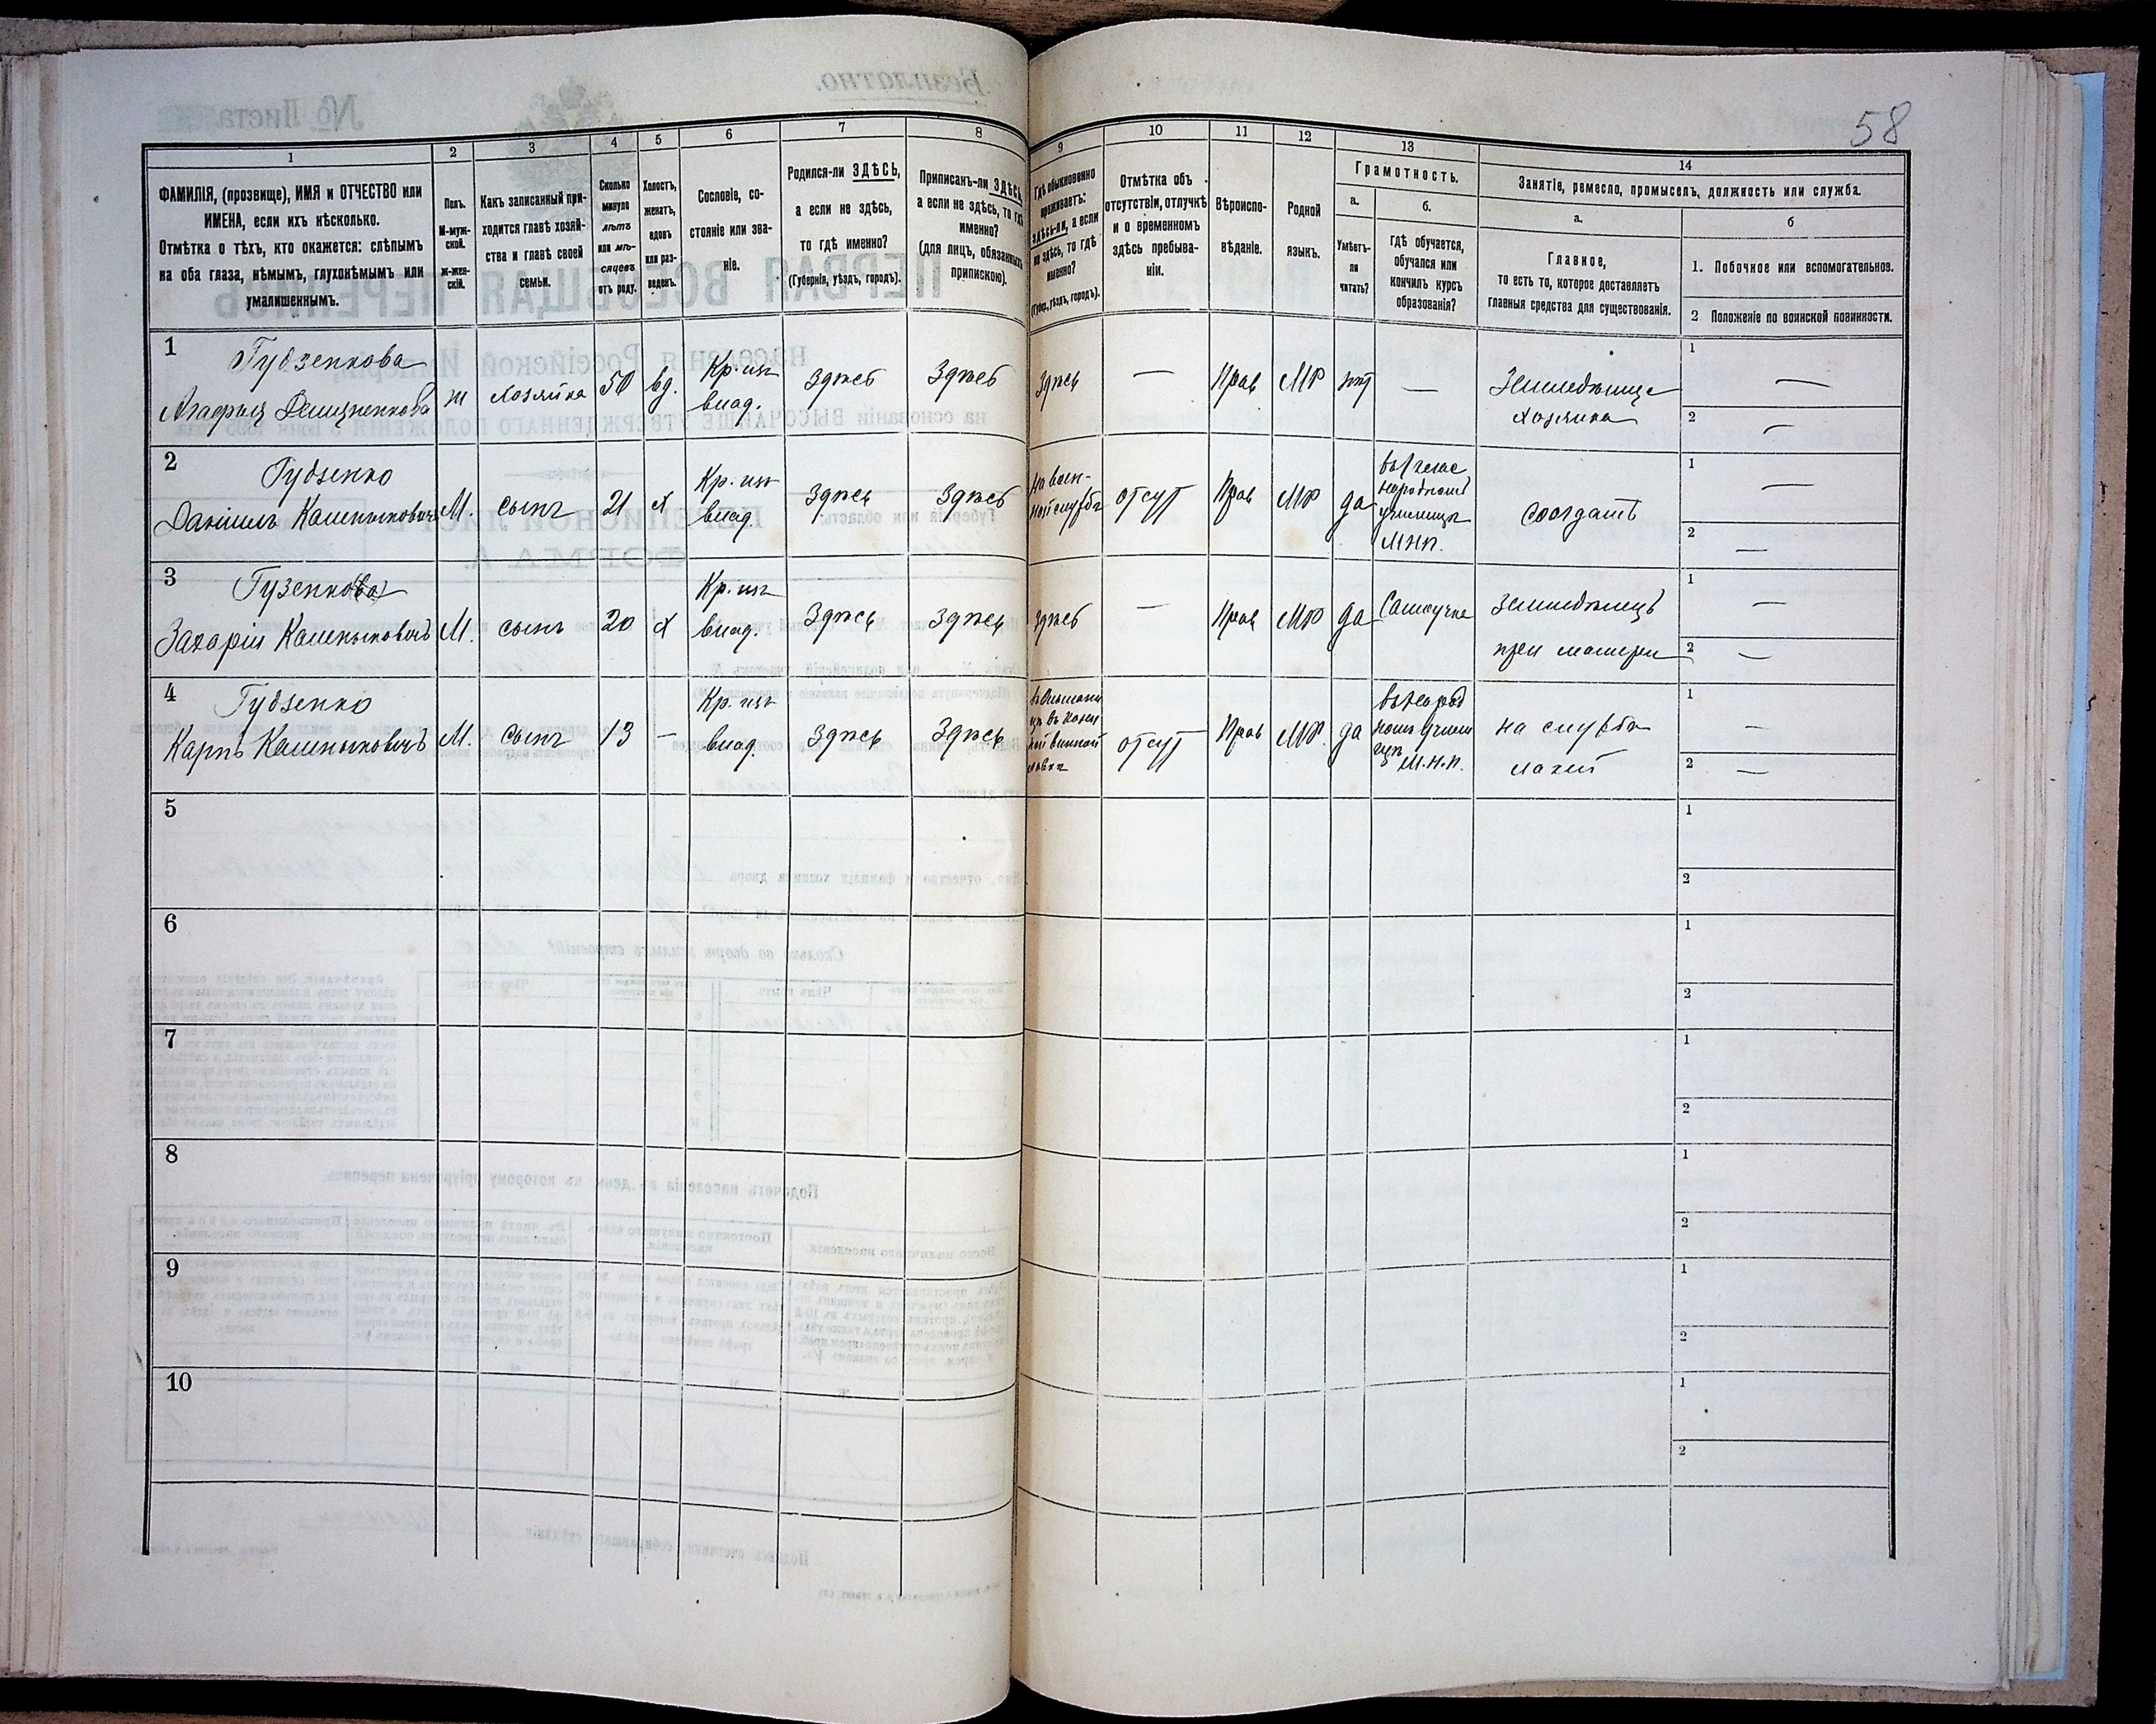 58
1 2 3 4 5 6 7 8 9 10 11 12 13 14
ФАМИЛІЯ, (прозвище), ИМЯ и ОТЧЕСТВО или
ИМЕНА, если ихъ нѣсколько.
Отмѣтка о тѣхъ, кто окажется: слѣпымъ
на оба глаза, нѣмымъ, глухонѣмымъ или
умалишеннымъ.
Полъ.
М-муж-
ской.
ж-жен-
скій.
Какъ записанный при-
ходится главѣ хозяй-
ства и главѣ своей
семьи.
Сколько
минуло
лѣтъ
или мѣ-
сяцевъ
отъ роду.
Холостъ,
женатъ,
вдовъ
или раз-
веденъ.
Сословіе, со-
стояніе или зва-
ніе.
Родился-ли ЗДѢСЬ,
а если не здѣсь,
то гдѣ именно?
(Губернія, уѣздъ, городъ).
Приписанъ-ли ЗДѢСЬ
а если не здѣсь, то гдѣ
именно?
(для лицъ, обязанныхъ
припискою).
Гдѣ обыкновенно
проживаетъ:
здѣсь-ли, а если
не здѣсь, то гдѣ
именно?
(Губ., уѣздъ, городъ).
Отмѣтка объ
отсутствіи, отлучкѣ
и о временномъ
здѣсь пребыва-
ніи.
Вѣроиспо-
вѣданіе.
Родной
языкъ.
Грамотность.
а.
Умѣетъ-
ли
читать?
б.
гдѣ обучается,
обучался или
кончилъ курсъ
образованія?
Занятіе, ремесло, промыселъ, должность или служба.
а.
Главное,
то есть то, которое доставляетъ
главныя средства для существованія.
б
1. Побочное или вспомогательное.
2 Положеніе по воинской повинности.
1
Гудзенкова
Агафья
ж
хозяйка
50
вд.
Кр. изъ
влад.
Здѣсь
Здѣсь
Здѣсь
—
Прав
МР
нѣт
—
Земледѣлица
хозяйка
1 —
2 —
2
Гудзенко
Данiилъ
М.
сынъ
21
х
Кр. изъ
влад.
Здѣсь
Здѣсь
На воен-
ной службѣ
отсут
Прав
МР
да
народномъ
училищѣ
МНП.
Солдатъ
1 —
2 —
3
Гузенко(ва)
Захарiй
М.
сынъ
20
х
Кр. изъ
влад.
Здѣсь
Здѣсь
Здѣсь
—
Прав
МР
да
Самоучка
Земледѣлецъ
при матери
1 —
2 —
4
Гудзенко
Карпъ
М.
сынъ
13
—
Кр. изъ
влад.
Здѣсь
Здѣсь
винной
лавкѣ
отсут
Прав
МР.
да
въ народ
номъ училищѣ
М.Н.П.
на службѣ
лакей
1 —
2 —
5
1
2
6
1
2
7
1
2
8
1
2
9
1
2
10
1
2